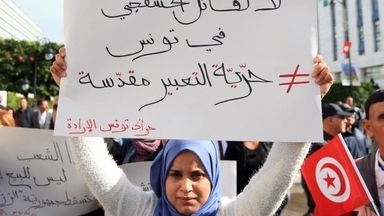 لا لقاتل خشقجي
في تونس
# حريّة التعبير مقدّسة
حراك تونس الإرادة
الشعب
ليس للبيع